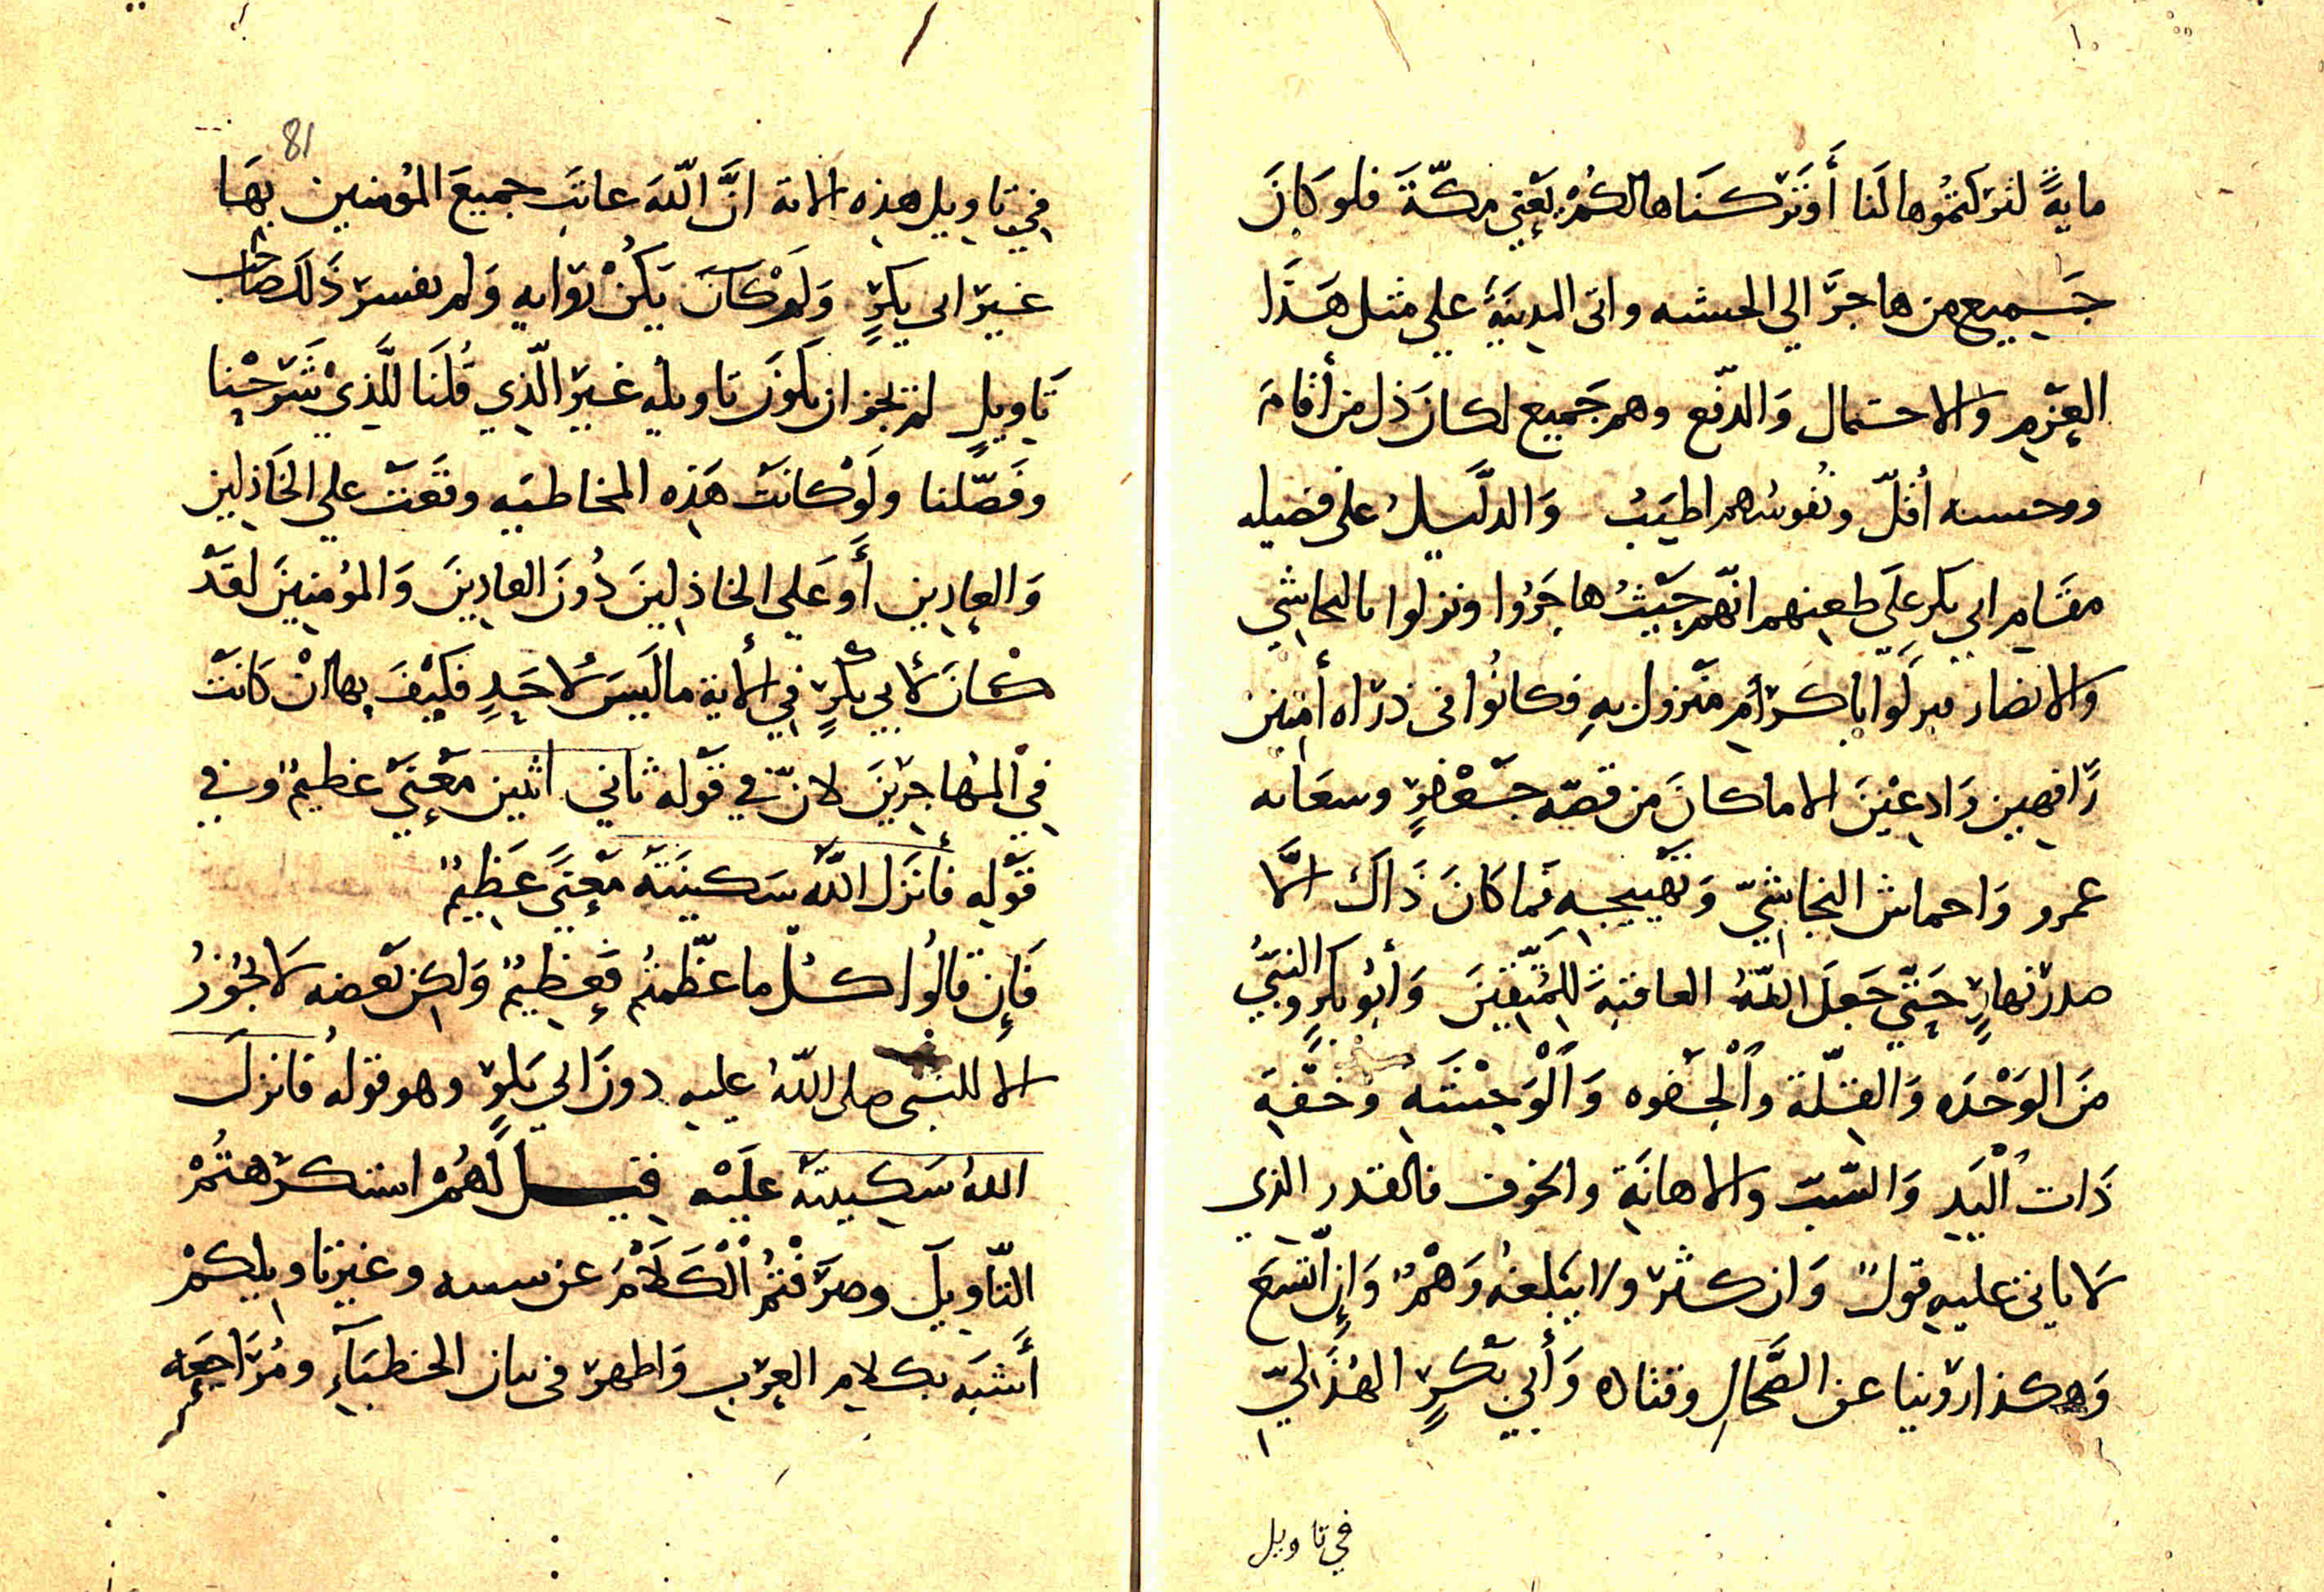 مايةً لتركتموها لَنا أو تركناها لكم يَعْني مكّةَ فلو كانَ
جَميع من هاجَرَ الي الحبشه واتى المدينَةَ علي مثل هَذَا
العزم والاحتمال وَالدفع وهم جَميع لكان ذل من أقامَ
ووحسىه أقلّ ونُفوسُهم اطيَبُ وَالدليلُ على فضيله
مقَام ابي بكر علَى طعنهم انّهم حَيْثُ هاجَرُوا ونزلوا بالنجاشي
والانصار نزلوا باكرَم منزول بهِ فكانُوا في ذراه أمنين
رَافهين وَادعينَ الا ما كانَ من قصّه جَعْفرٍ وسعَايه
عمرو وَاحماش النجاشيّ وَتهييجه فما كانَ ذَاكَ الَّا
صدر نهارٍ حَتّي جَعلَ اللّهُ العاقبةَ للمُتّقينَ وَأبُو بكرٍ والنبيُّ
منَ الوَحْدَه وَالقلّة واَلْجَفوه وَالْوَحْشَه وَخفّة
ذَات اليَدِ وَالسّبّ والاهانَة والخوف فالقدر الذي
لَا ياتي عليه قولٌ وَان كثر ولا يَبلغهُ وَهْمٌ وَإن اتّسَعَ
وَهكذا روَينا عن الضَّحاك وقتاده وَأَبي بَكرٍ الهُذَليّ
في تاويل
81
في تاويل هذه الاية انَّ اللّهَ عاتبَ جميعَ المؤمنين بهَا
غيرَ ابي بكرٍ وَلو كانَ يَكُنْ توابه وَلم يفسر ذَلك صَاحب
تَاويلٍ لم يَجز ان يكونَ تاويله غيرَ الّذي قُلنَا للَّذيْ شَرحْنا
وفَصّلنا ولَوْ كانَتْ هَذه المخاطبه وقَعَتْ علي الخَاذلين
وَالعادين أَو عَلى الخاذلينَ دُونَ العادينَ وَالمؤمنينَ لقَدْ
كانَ لأبي بَكرٍ في الأية ما لَيسَ لاحَدٍ فكَيْفَ بها انْ كانَتْ
في المُهاجرينَ لانّ في قَوله ثاني اثنين مَعْنيً عظيمٌ وفي
قَوْلِه فأنزَل اللّهُ سَكينَتَهُ مَعْنيً عَظِيمٌ
فَإن قالُوا كلُّ ما عَظّمتُم فَعظيمٌ وَلكِن بَعضه لَا يجُوزُ
الا للنبي صلى اللّهُ عليه دونَ ابي بَكرٍ وهو قولهُ فانزلَ
اللهُ سَكِينتَهُ علَيْه قيل لَهُمْ استكرَهتُمْ
التّاويلَ وصَرَفْتُمُ الْكَلَامَ عن سىىه وغير تاويلكمْ
أَشبَه بكلام العرَب وَاظهر في بيان الخطبَآءِ ومُرَاجعَه